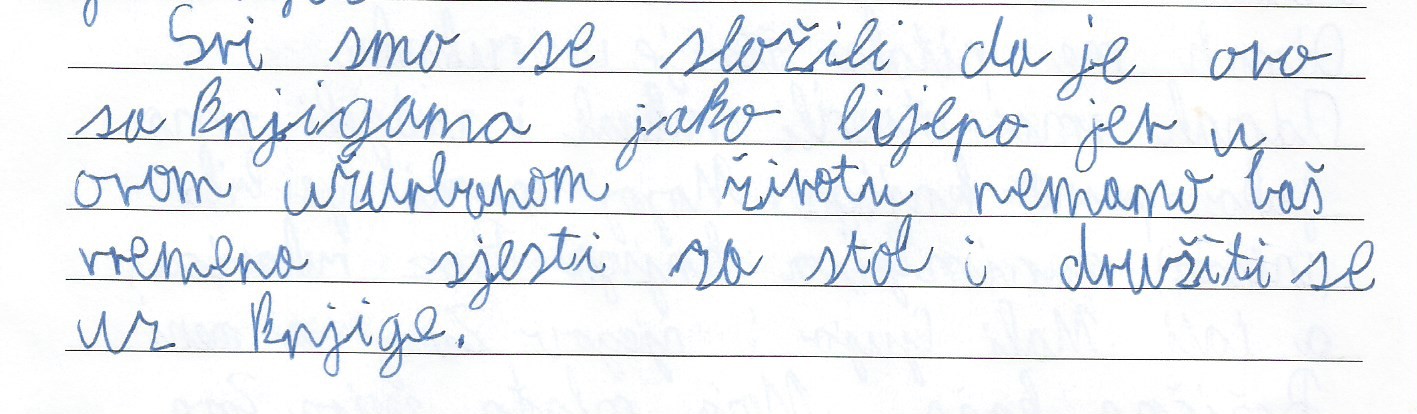 Svi smo se složili da je ovo
sa knjigama jako lijepo jer u
ovom užurbanom životu nemamo baš
vremena sjesti za stol i družiti se
uz knjige.